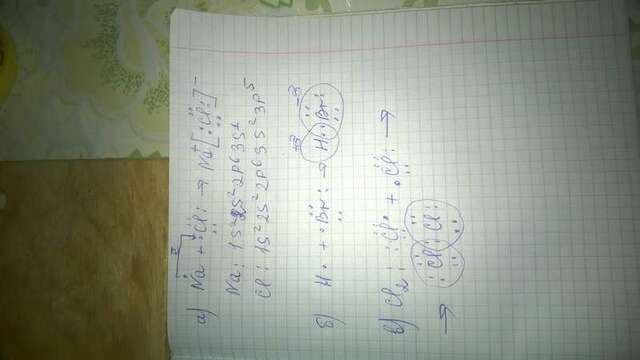 а) Na + :Cl: → Na⁺[:Cl:]⁻
Na: 1s²2s²2p⁶3s¹
Cl: 1s²2s²2p⁶3s²3p⁵
б) H• + •Br: → H:Br:
в) Cl₂: :Cl• + •Cl: →
→ :Cl:Cl: